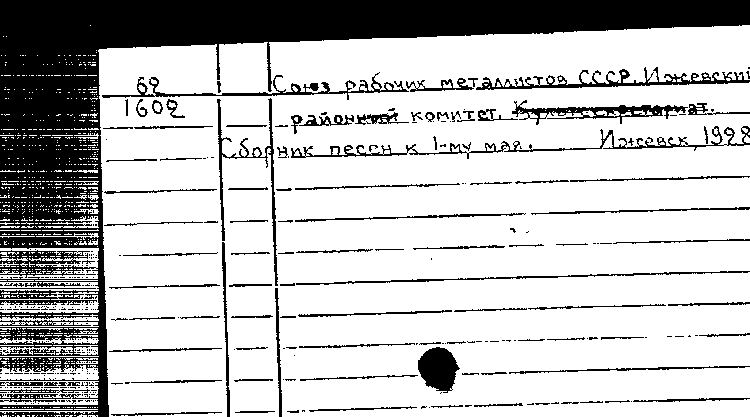 62
1602
Союз рабочих металлистов СССР. Ижевский
районный комитет. Культсекретариат.
Сборник песен к 1-му мая. Ижевск, 1928